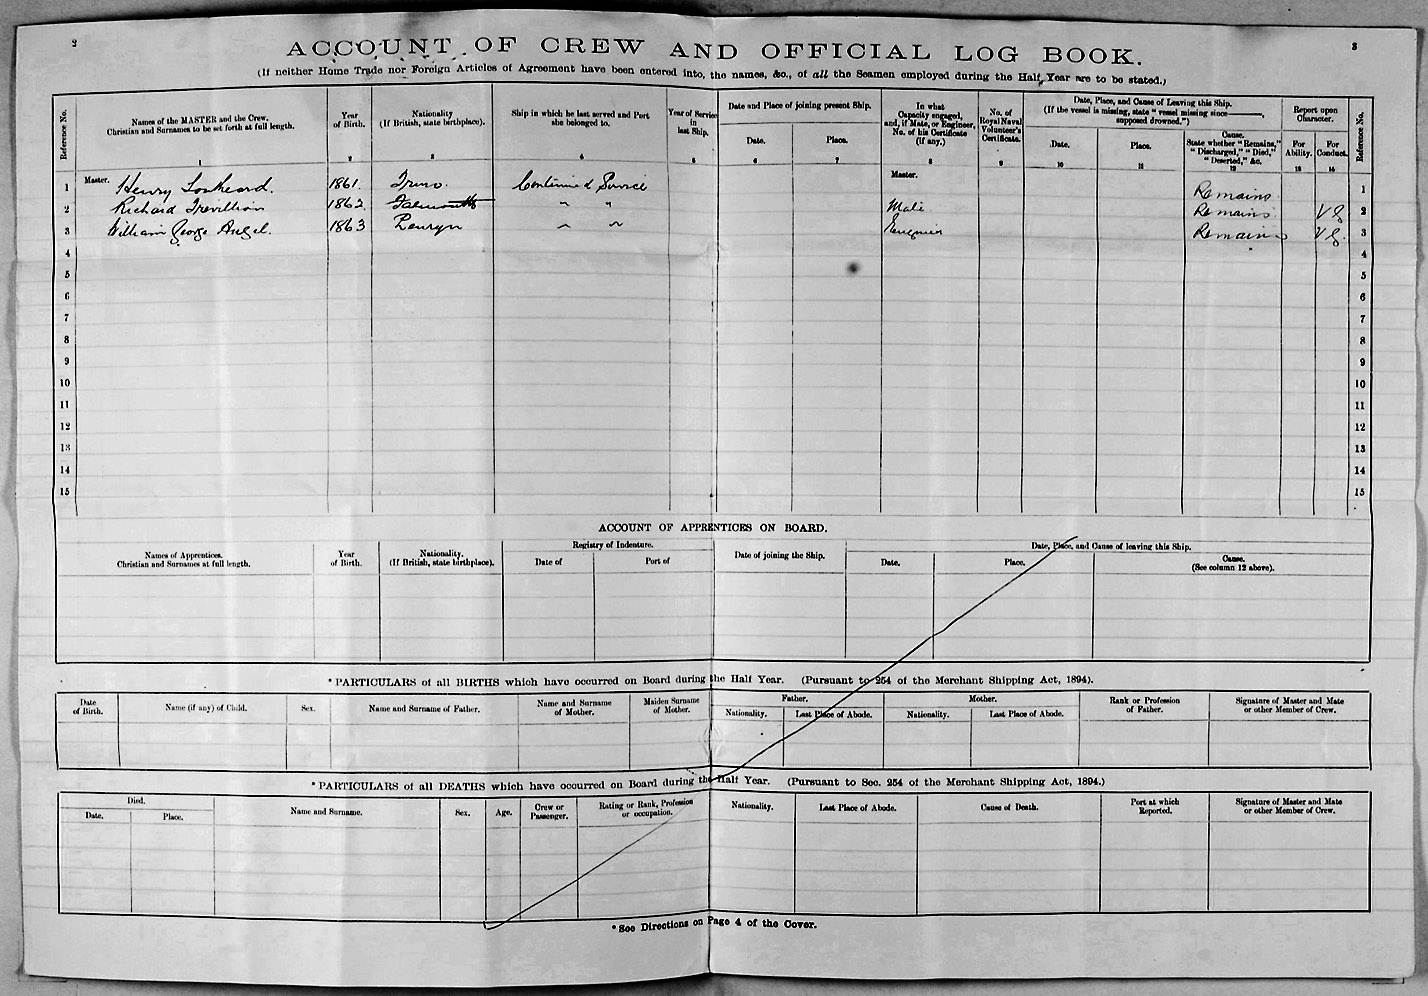 2
3
ACCOUNT OF CREW AND OFFICIAL LOG BOOK.
(If neither Home Trade nor Foreign Articles of Agreement have been entered into, the names, &c., of all the Seamen employed during the Half Year are to be stated.)
Reference No.
Names of the MASTER and the Crew. Christian and Surnames to be set forth at full length.
Year of Birth.
Nationality (If British, state birthplace).
Ship in which he last served and Port she belonged to.
Year of Service in last Ship.
Date and Place of joining present Ship.
Date.
Place.
In what Capacity engaged, and, if Mate, or Engineer, No. of his Certificate (if any.)
No. of Royal Naval Volunteer's Certificate.
Date, Place, and Cause of Leaving this Ship.
(If the vessel is missing, state "vessel missing since ———, supposed drowned.")
Date.
Place.
Cause. State whether "Remains," "Discharged," "Died," "Deserted," &c.
Report upon Character.
For Ability.
For Conduct.
Reference No.
1 2 3 4 5 6 7 8 9 10 11 12 13 14
1 Master. Henry 1861. Truro. Continued Service Master. Remains 1
2 Richard Trevillion 1862. Falmouth " " Mate Remains. V G 2
3 William George Angel. 1863 Penryn " " Engineer Remains V G. 3
4 4
5 5
6 6
7 7
8 8
9 9
10 10
11 11
12 12
13 13
14 14
15 15
ACCOUNT OF APPRENTICES ON BOARD.
Names of Apprentices. Christian and Surnames at full length.
Year of Birth.
Nationality. (If British, state birthplace).
Registry of Indenture.
Date of
Port of
Date of joining the Ship.
Date, Place, and Cause of leaving this Ship.
Date.
Place.
Cause. (See column 12 above).
*PARTICULARS of all BIRTHS which have occurred on Board during the Half Year. (Pursuant to 254 of the Merchant Shipping Act, 1894).
Date of Birth.
Name (if any) of Child.
Sex.
Name and Surname of Father.
Name and Surname of Mother.
Maiden Surname of Mother.
Father.
Nationality.
Last Place of Abode.
Mother.
Nationality.
Last Place of Abode.
Rank or Profession of Father.
Signature of Master and Mate or other Member of Crew.
*PARTICULARS of all DEATHS which have occurred on Board during the Half Year. (Pursuant to Sec. 254 of the Merchant Shipping Act, 1894.)
Died.
Date.
Place.
Name and Surname.
Sex.
Age.
Crew or Passenger.
Rating or Rank, Profession or occupation.
Nationality.
Last Place of Abode.
Cause of Death.
Port at which Reported.
Signature of Master and Mate or other Member of Crew.
*See Directions on Page 4 of the Cover.